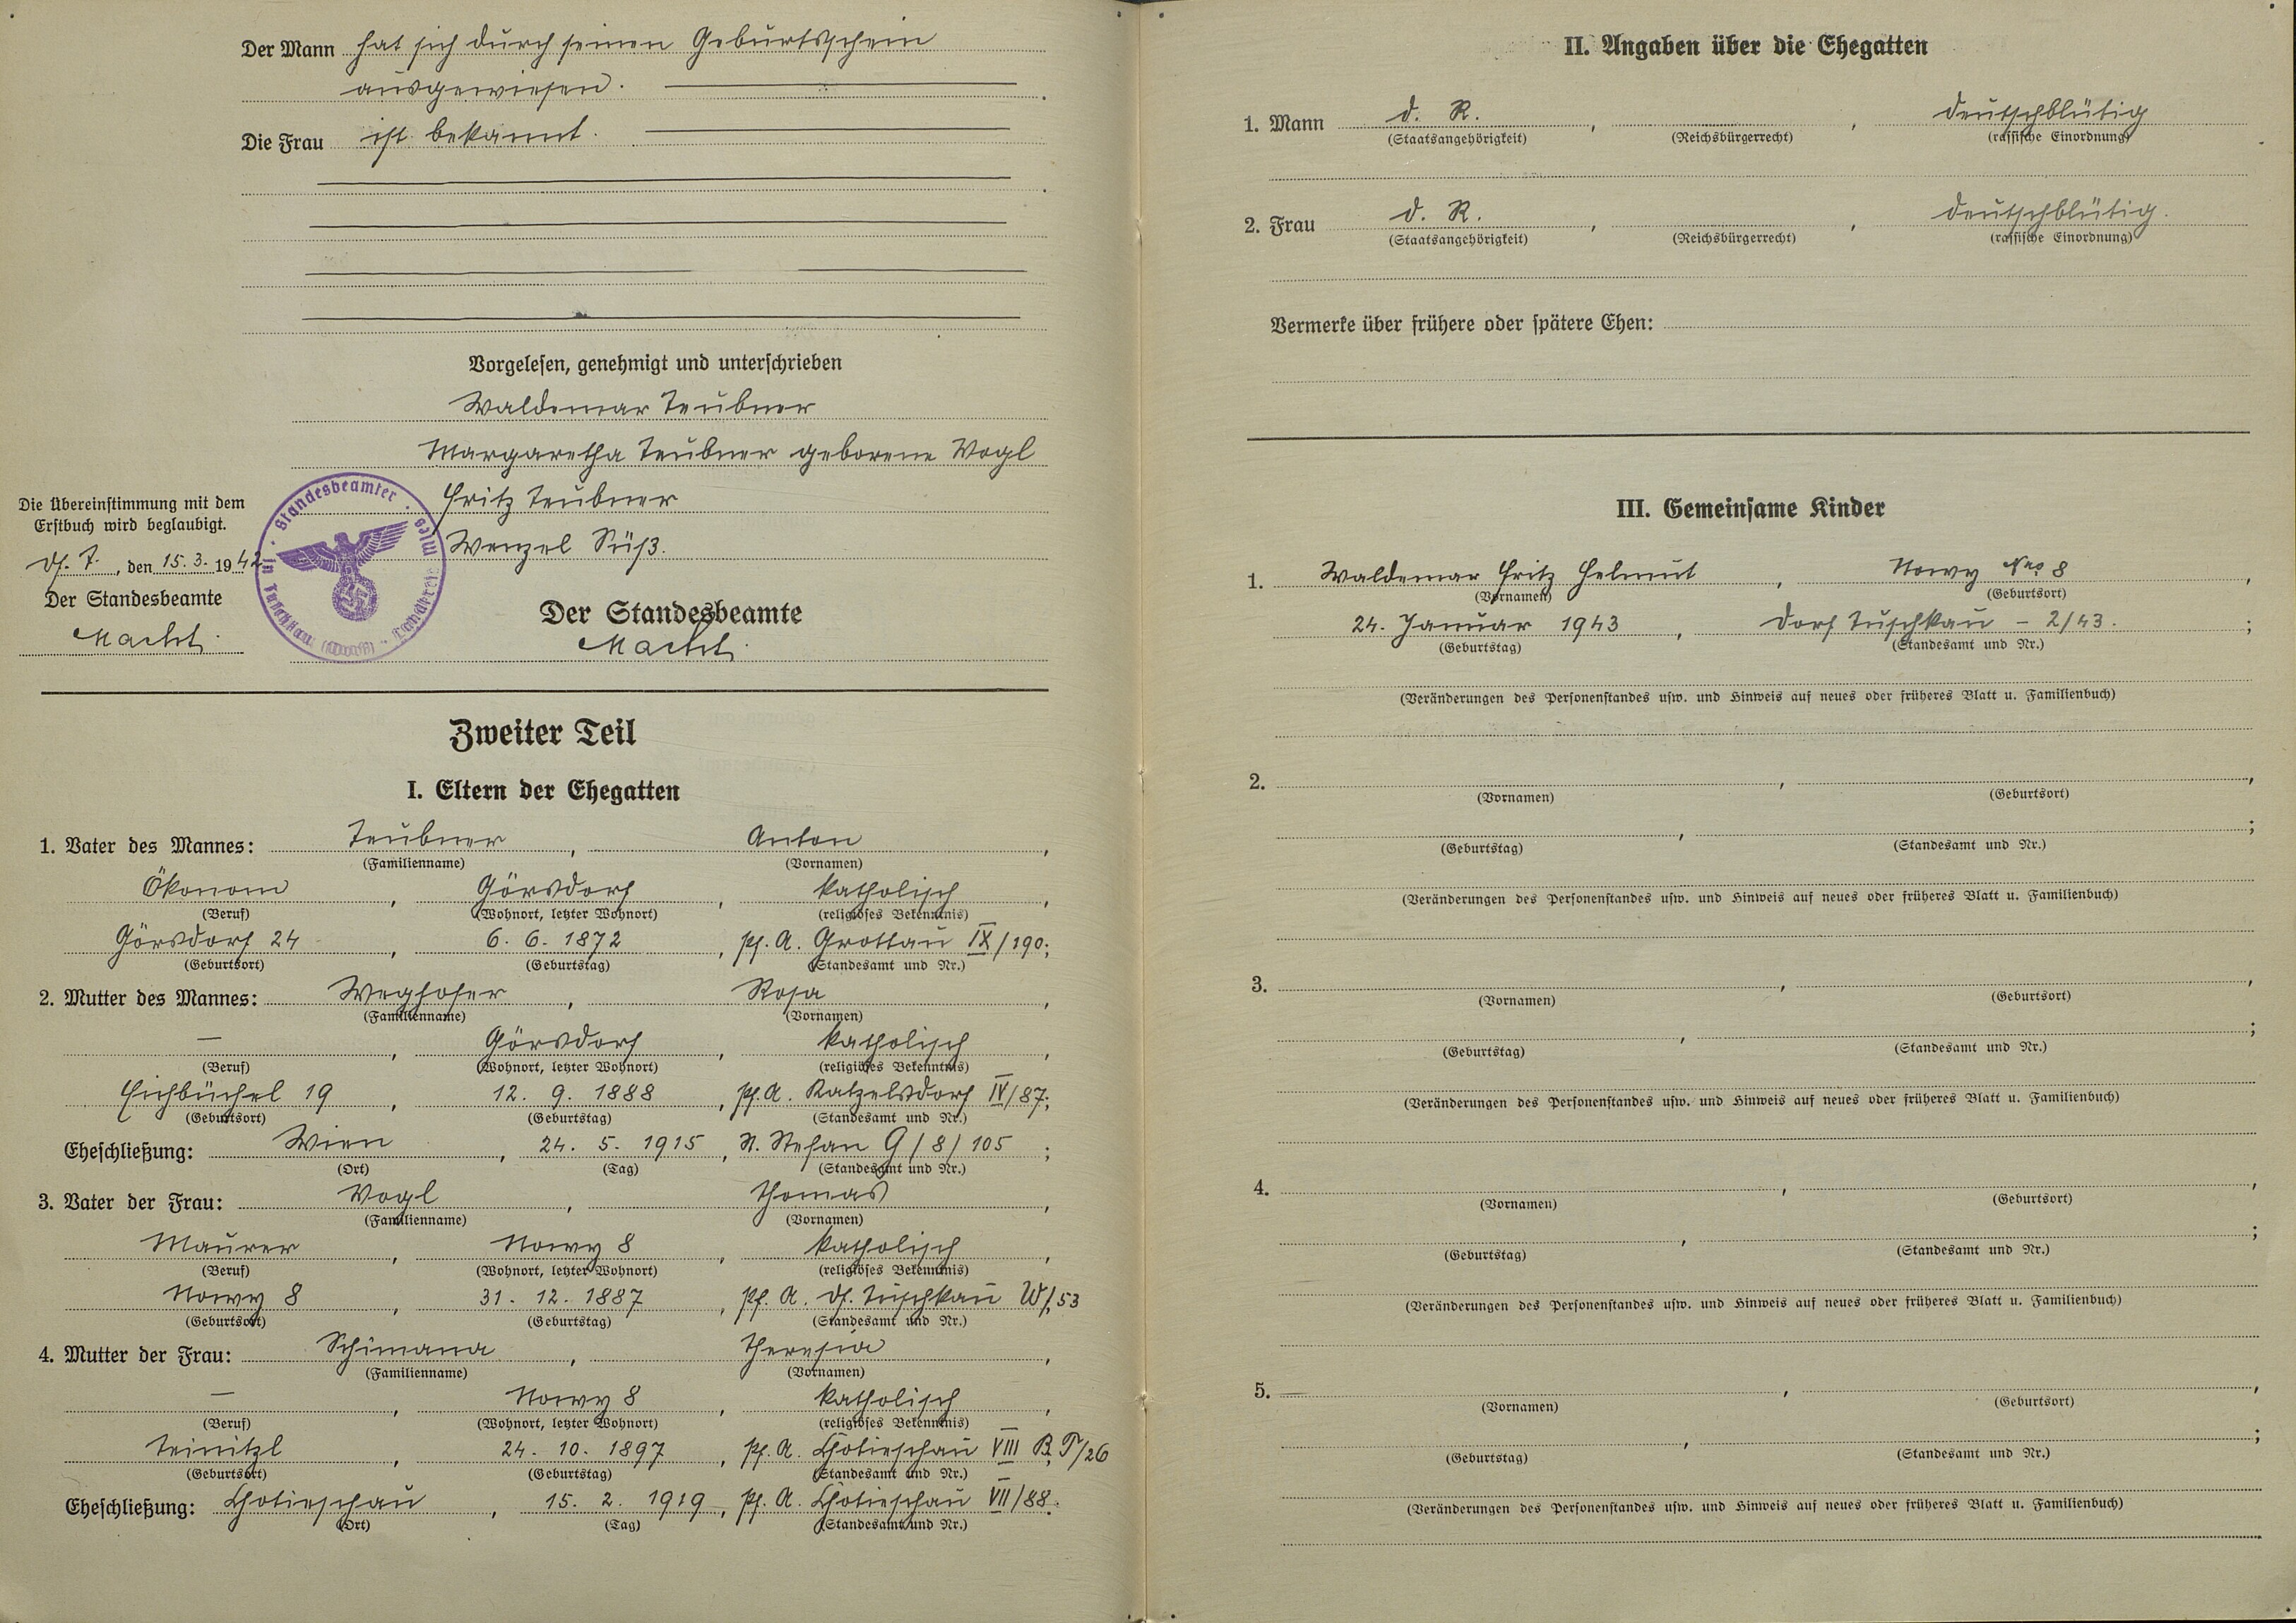 Der Mann hat sich durch seinen Geburtsschein
ausgewiesen.
Die Frau ist bekannt.
Vorgelesen, genehmigt und unterschrieben
Waldemar Teubner
Margaretha Teubner geborene Vogl
Fritz Teubner
Wenzel Süß.
Die Übereinstimmung mit dem
Erstbuch wird beglaubigt.
Df. T., den 15. 3. 1942
Der Standesbeamte
Macht
Standesbeamter in Tuschkau (Dorf) · Landkreis Mies
Der Standesbeamte
Macht
Zweiter Teil
I. Eltern der Ehegatten
1. Vater des Mannes: Teubner, Anton,
(Familienname) (Vornamen)
Ökonom, Görsdorf, katholisch,
(Beruf) (Wohnort, letzter Wohnort) (religiöses Bekenntnis)
Görsdorf 24, 6. 6. 1872, Pf. A. Grottau IX/190;
(Geburtsort) (Geburtstag) (Standesamt und Nr.)
2. Mutter des Mannes: Weghofer, Rosa,
(Familienname) (Vornamen)
—, Görsdorf, katholisch,
(Beruf) (Wohnort, letzter Wohnort) (religiöses Bekenntnis)
Eichbüchel 19, 12. 9. 1888, Pf. A. Katzelsdorf IV/87;
(Geburtsort) (Geburtstag) (Standesamt und Nr.)
Eheschließung: Wien, 24. 5. 1915, St. Stefan 9/8/105;
(Ort) (Tag) (Standesamt und Nr.)
3. Vater der Frau: Vogl, Thomas,
(Familienname) (Vornamen)
Maurer, Nowy 8, katholisch,
(Beruf) (Wohnort, letzter Wohnort) (religiöses Bekenntnis)
Nowy 8, 31. 12. 1887, Pf. A. Df. Tuschkau 53
(Geburtsort) (Geburtstag) (Standesamt und Nr.)
4. Mutter der Frau: Schimana, Theresia,
(Familienname) (Vornamen)
—, Nowy 8, katholisch,
(Beruf) (Wohnort, letzter Wohnort) (religiöses Bekenntnis)
Teinitzl, 24. 10. 1897, Pf. A. Chotieschau VIII B. T/26
(Geburtsort) (Geburtstag) (Standesamt und Nr.)
Eheschließung: Chotieschau, 15. 2. 1919, Pf. A. Chotieschau VII/88.
(Ort) (Tag) (Standesamt und Nr.)
II. Angaben über die Ehegatten
1. Mann d. R., , deutschblütig
(Staatsangehörigkeit) (Reichsbürgerrecht) (rassische Einordnung)
2. Frau d. R., , deutschblütig.
(Staatsangehörigkeit) (Reichsbürgerrecht) (rassische Einordnung)
Vermerke über frühere oder spätere Ehen:
III. Gemeinsame Kinder
1. Waldemar Fritz Helmut, Nowy Nro 8,
(Vornamen) (Geburtsort)
24. Januar 1943, Dorf Tuschkau – 2/43.;
(Geburtstag) (Standesamt und Nr.)
(Veränderungen des Personenstandes usw. und Hinweis auf neues oder früheres Blatt u. Familienbuch)
2. , ,
(Vornamen) (Geburtsort)
, ;
(Geburtstag) (Standesamt und Nr.)
(Veränderungen des Personenstandes usw. und Hinweis auf neues oder früheres Blatt u. Familienbuch)
3. , ,
(Vornamen) (Geburtsort)
, ;
(Geburtstag) (Standesamt und Nr.)
(Veränderungen des Personenstandes usw. und Hinweis auf neues oder früheres Blatt u. Familienbuch)
4. , ,
(Vornamen) (Geburtsort)
, ;
(Geburtstag) (Standesamt und Nr.)
(Veränderungen des Personenstandes usw. und Hinweis auf neues oder früheres Blatt u. Familienbuch)
5. , ,
(Vornamen) (Geburtsort)
, ;
(Geburtstag) (Standesamt und Nr.)
(Veränderungen des Personenstandes usw. und Hinweis auf neues oder früheres Blatt u. Familienbuch)